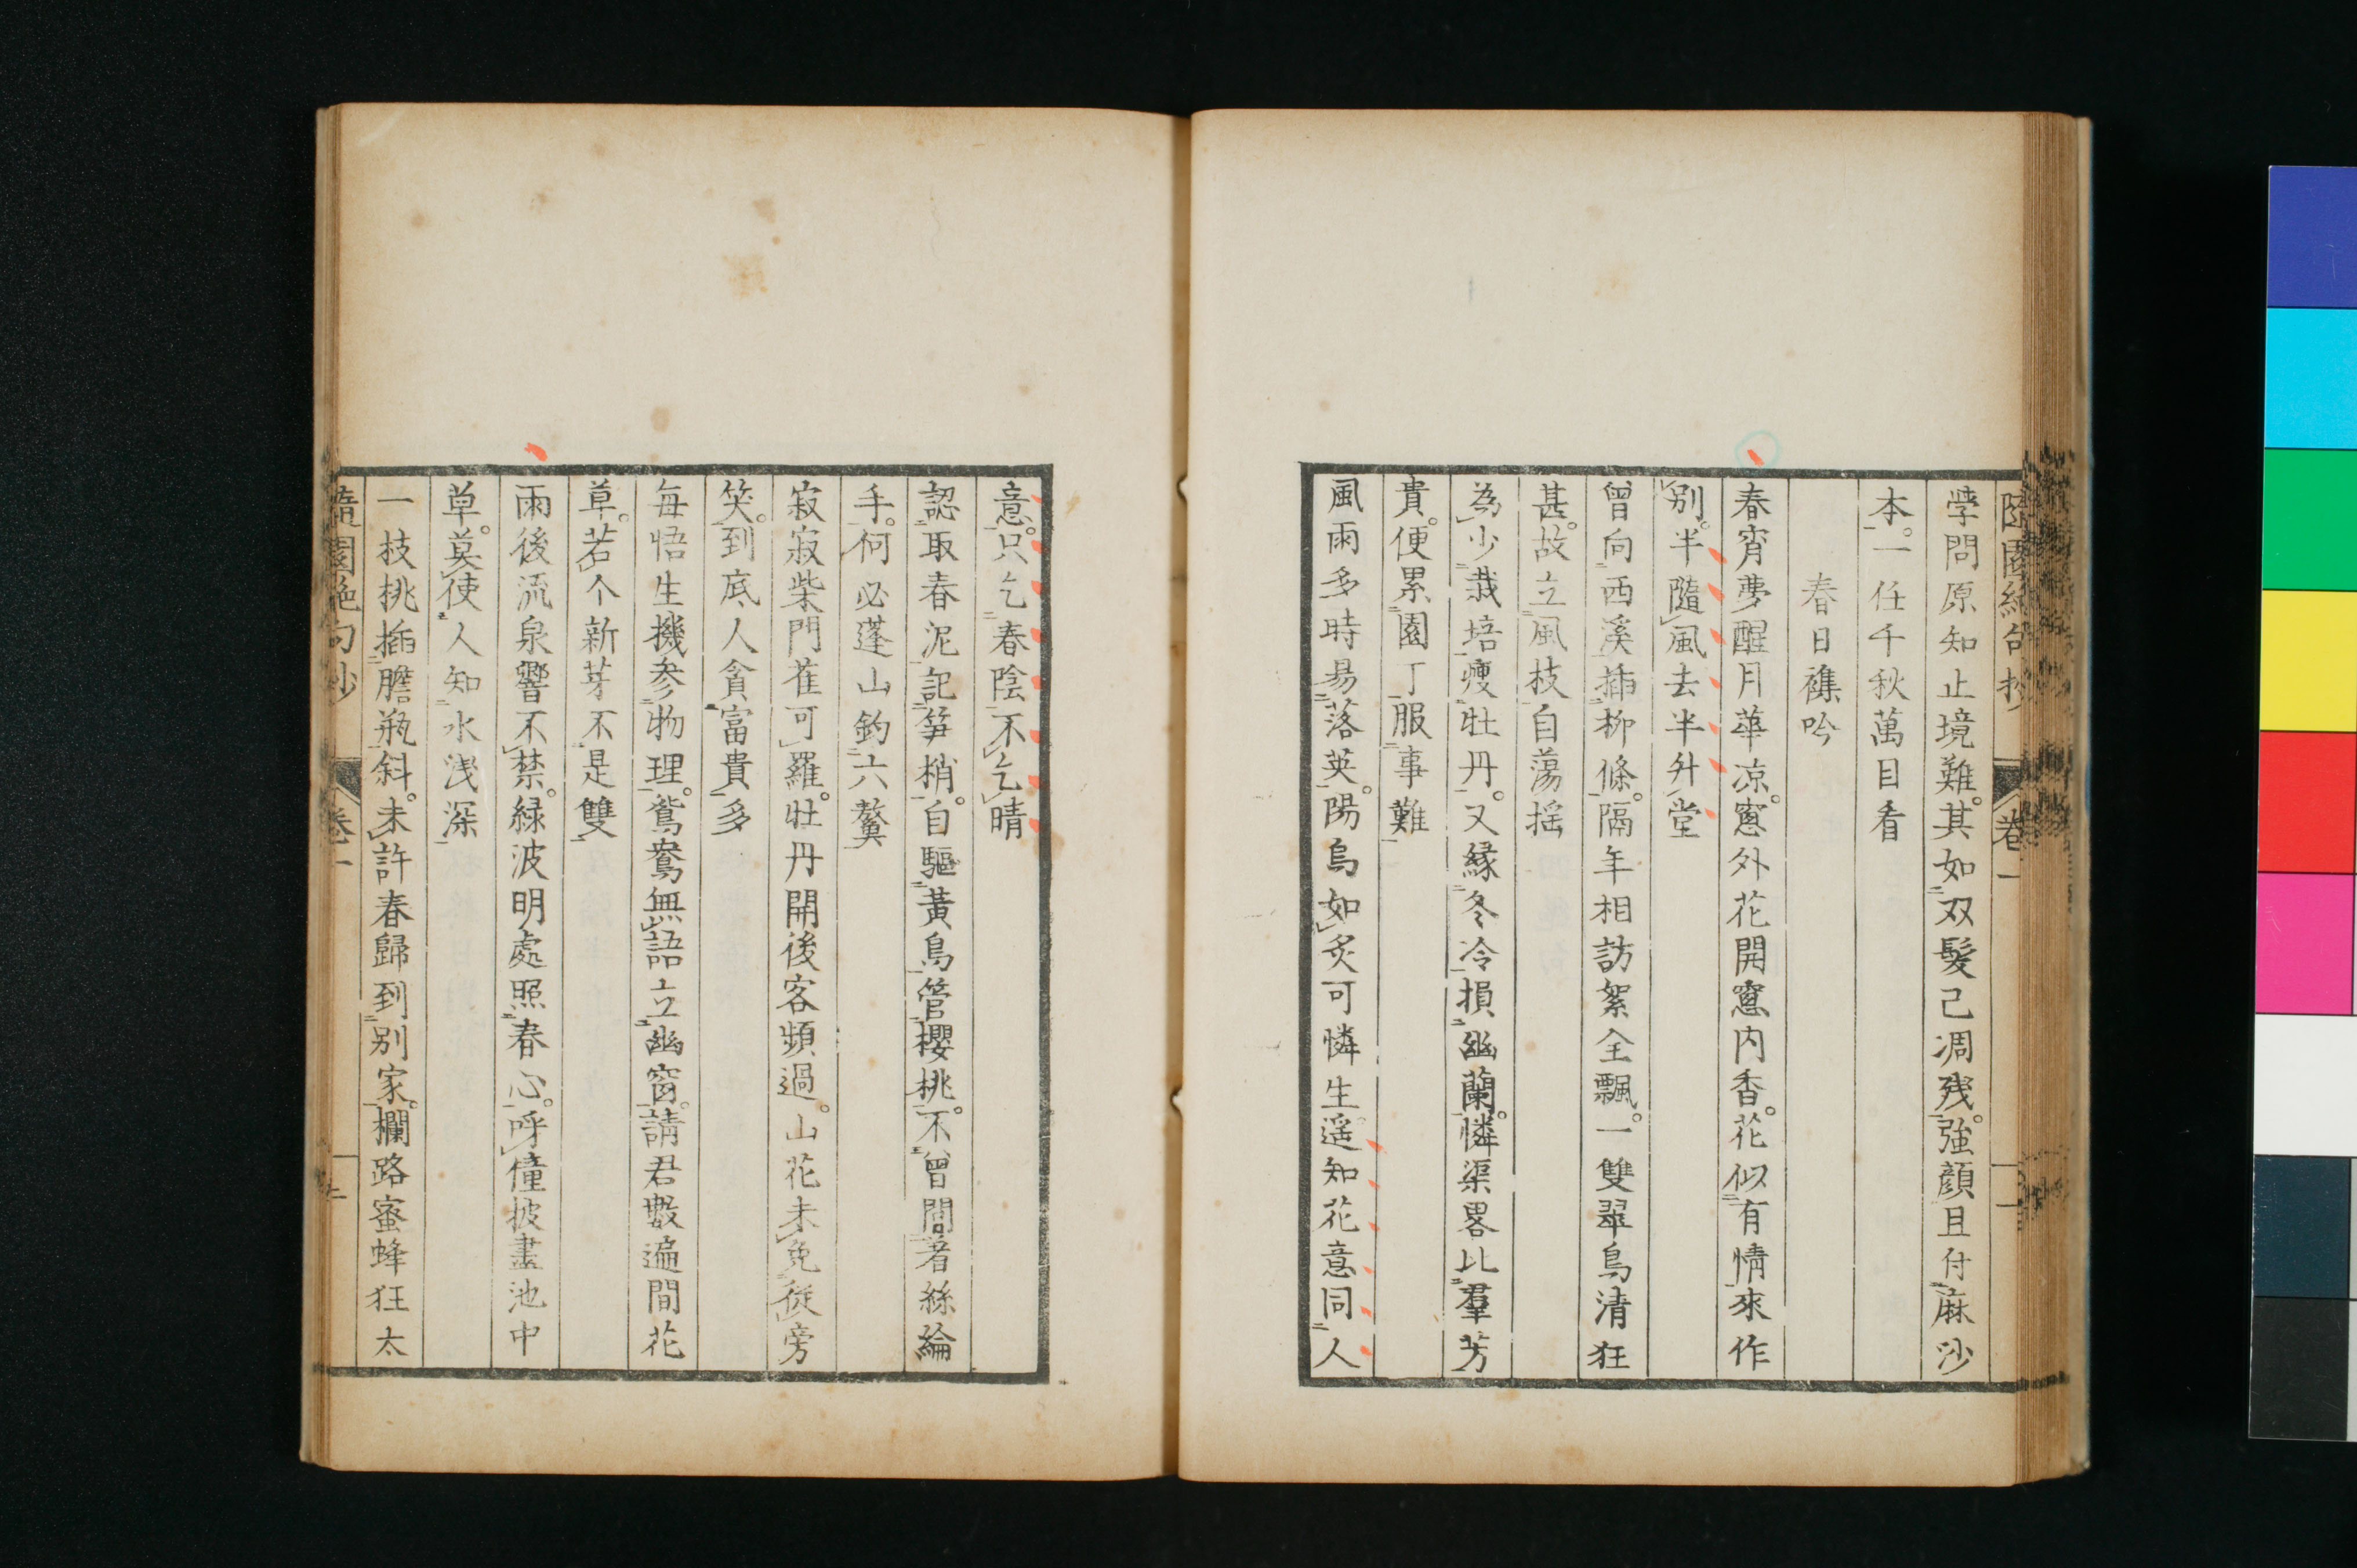 隨園絶句抄 卷一
學問原知止境難。其如双髮己凋残。強顔且付麻沙
本。一任千秋萬目看
春日襍吟
春宵夢醒月華凉。窻外花開窻内香。花似有情來作
别。半隨風去半升堂
曾向西溪插柳條。隔年相訪絮全飄。一雙翠鳥清狂
甚。故立風枝自蕩揺
為少栽培瘦牡丹。又縁冬冷損幽蘭。憐渠畧比羣芳
貴。便累園丁服事難
風雨多時易落英。陽烏如炙可憐生。遥知花意同人
意。只乞春陰不乞晴
認取春泥記笋梢。自驅黃鳥管櫻桃。不曾間著絲綸
手。何必蓬山釣六鰲
寂寂柴門雀可羅。牡丹開後客頻過。山花未免從旁
笑。到底人貪富貴多
每悟生機参物理。鴛鴦無語立幽窗。請君數遍間花
草。若个新芽不是雙
雨後流泉響不禁。緑波明處照春心。呼僮披盡池中
草。莫使人知水浅深
一枝桃插膽瓶斜。未許春歸到别家。欄路蜜蜂狂太
隨園絶句抄 卷一